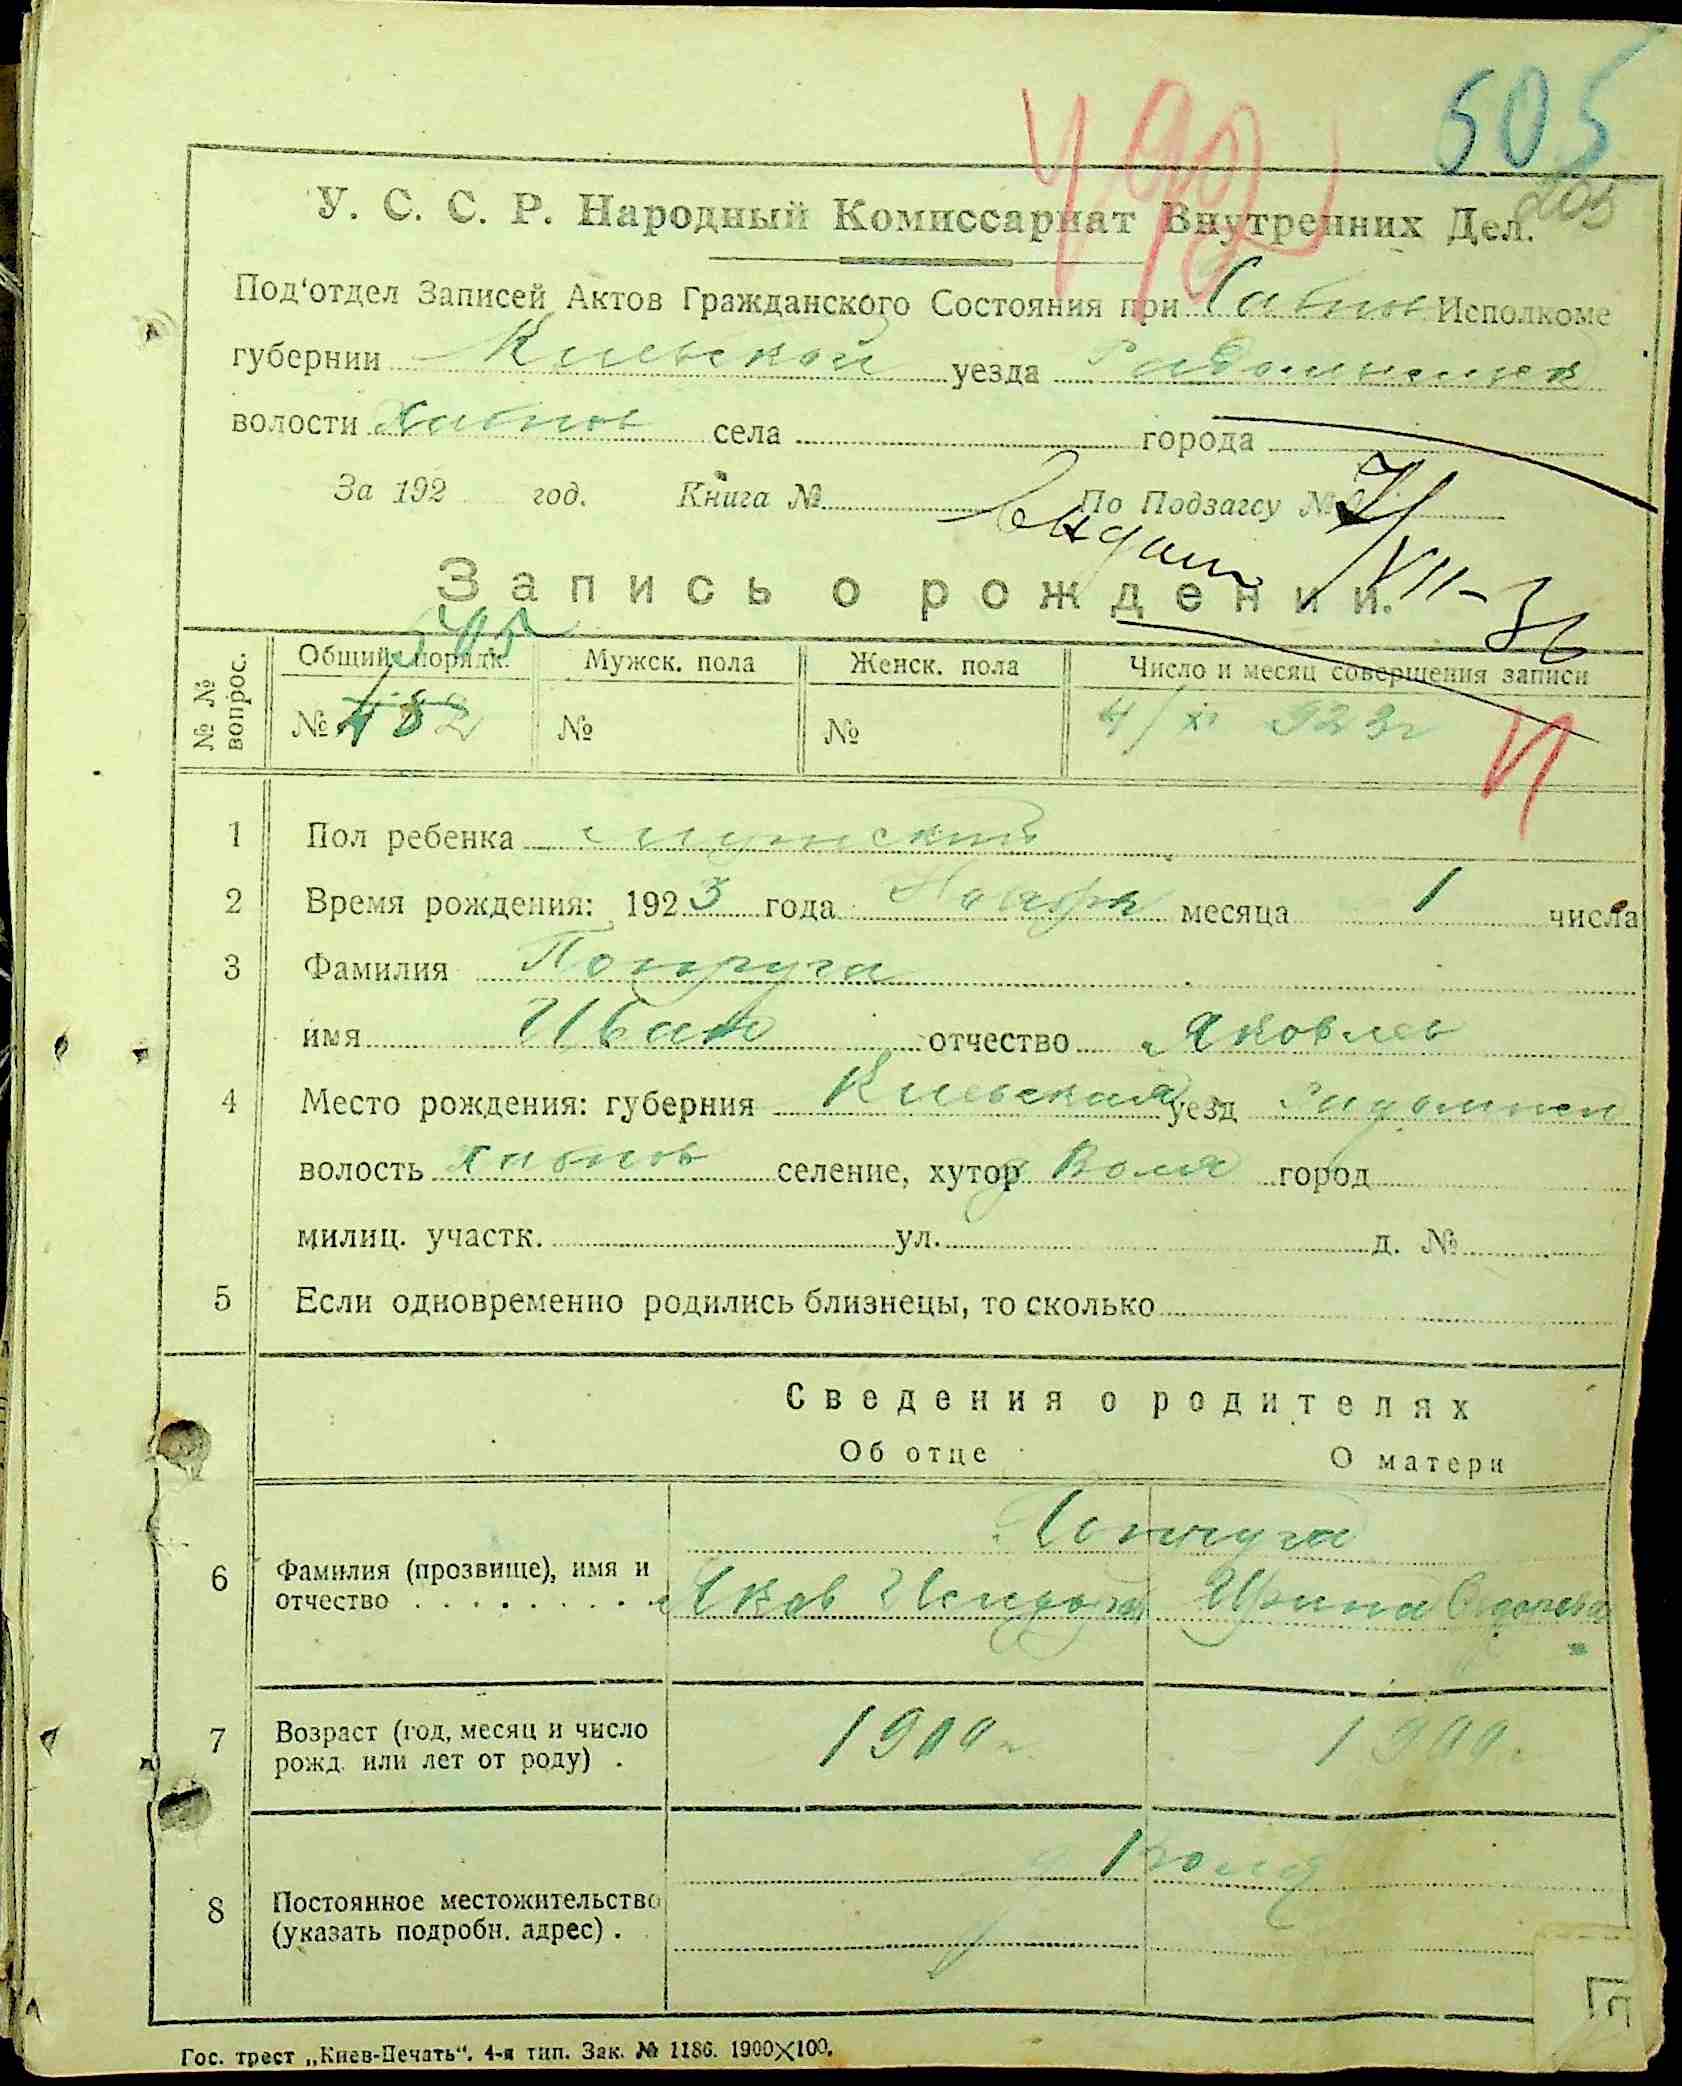 505
492
205
У. С. С. Р. Народный Комиссариат Внутренних Дел.
Под'отдел Записей Актов Гражданского Состояния при Хабнов Исполкоме
губернии Киевской уезда Радомысльск
волости Хабнов села город­а
За 192 год. Книга № По Подзагсу №
Выдан VII-36
Запись о рождении.
№ № вопрос.
Общий порядк. Мужск. пола Женск. пола Число и месяц совершения записи
505
№ 482 № № 4/XI 923г
1 Пол ребенка мужской
2 Время рождения: 1923 года Ноября месяца 1 числа
3 Фамилия
имя Иван отчество Яковлев
4 Место рождения: губерния Киевская уезд
волость Хабнов селение, хутор д Воля город
милиц. участк. ул. д. №
5 Если одновременно родились близнецы, то сколько
Сведения о родителях
Об отце О матери
6 Фамилия (прозвище), имя и
отчество Яков Ирина
7 Возраст (год, месяц и число
рожд. или лет от роду) . 1900г. 1900.
д Воля
8 Постоянное местожительство
(указать подробн. адрес) .
Гос. трест „Киев-Печать“. 4-я тип. Зак. № 1186. 1900×100.